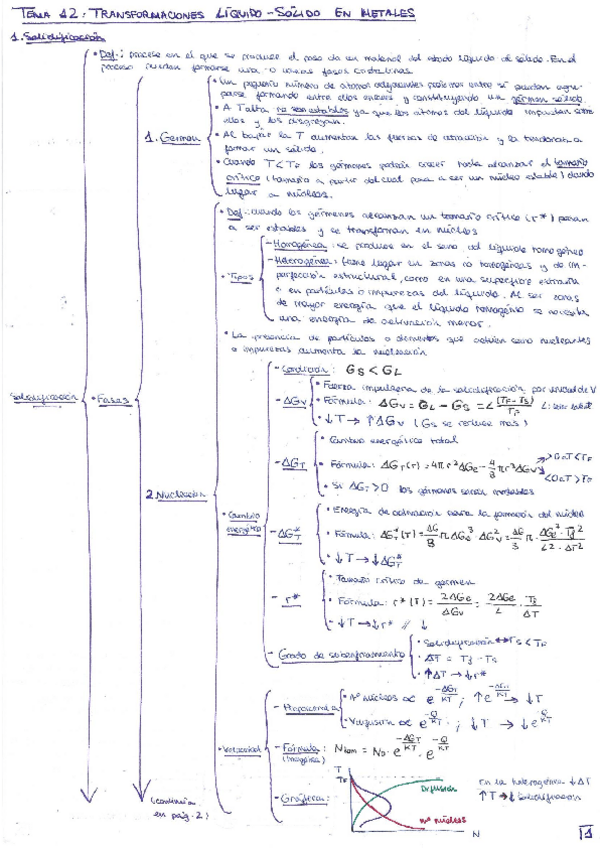 TEMA 12: TRANSFORMACIONES LÍQUIDO-SÓLIDO EN METALES
1. Solidificación
Solidificación
• Def.: proceso en el que se produce el paso de un material del estado líquido al sólido. En el
proceso pueden formarse una o varias fases cristalinas.
• Fases
1. Germen
• Un pequeño número de átomos adyacentes próximos entre sí pueden agru-
parse formando entre ellos enlaces y constituyendo un germen sólido.
• A T alta no son estables ya que los átomos del líquido impactan entre
ellos y los disgregan.
• Al bajar la T aumentan las fuerzas de atracción y la tendencia a
formar un sólido.
• Cuando T < TF los gérmenes podrán crecer hasta alcanzar el tamaño
crítico (tamaño a partir del cual pasa a ser un núcleo estable) dando
lugar a núcleos.
2. Nucleación
• Def.: cuando los gérmenes alcanzan un tamaño crítico (r*) pasan
a ser estables y se transforman en núcleos
• Tipos
- Homogénea: se produce en el seno del líquido homogéneo
- Heterogénea: tiene lugar en zonas no homogéneas y de im-
perfección estructural, como en una superficie extraña
o en partículas o impurezas del líquido. Al ser zonas
de mayor energía que el líquido homogéneo se necesita
una energía de activación menor.
• La presencia de partículas o elementos que actúen como nucleantes
o impurezas aumenta la nucleación
• Cambio
energético
- Condición: GS < GL
- ΔGV
• Fuerza impulsora de la solidificación por unidad de V
• Fórmula: ΔGV = GL - GS = L (TF - TS) / TF
• ↓T → ↑ΔGV (GS se reduce más)
- ΔGT
• Cambio energético total
• Fórmula: ΔGT(r) = 4πr²ΔGe - 4/3 πr³ΔGV
>0 a T<TF
<0 a T>TF
• Si ΔGT > 0 los gérmenes serán inestables
- ΔGT*
• Energía de activación para la formación del núcleo
• ↓T → ↓ΔGT*
- r*
• Tamaño crítico de germen
• Fórmula: r*(T) = 2ΔGe / ΔGV = 2ΔGe / L · Tf / ΔT
• ↓T → ↓r*
- Grado de subenfriamiento
• Solidificación ↔ TS < TF
• ΔT = Tf - TS
• ↑ΔT → ↓r*
• Velocidad
- Proporcional a
• Nº núcleos ∝
• Vdifusión ∝
- Fórmula:
- Gráfica:
T
TF
Difusión
nº núcleos
N
En la heterogénea ↓ΔT
(continúa
en pág. 2)
1